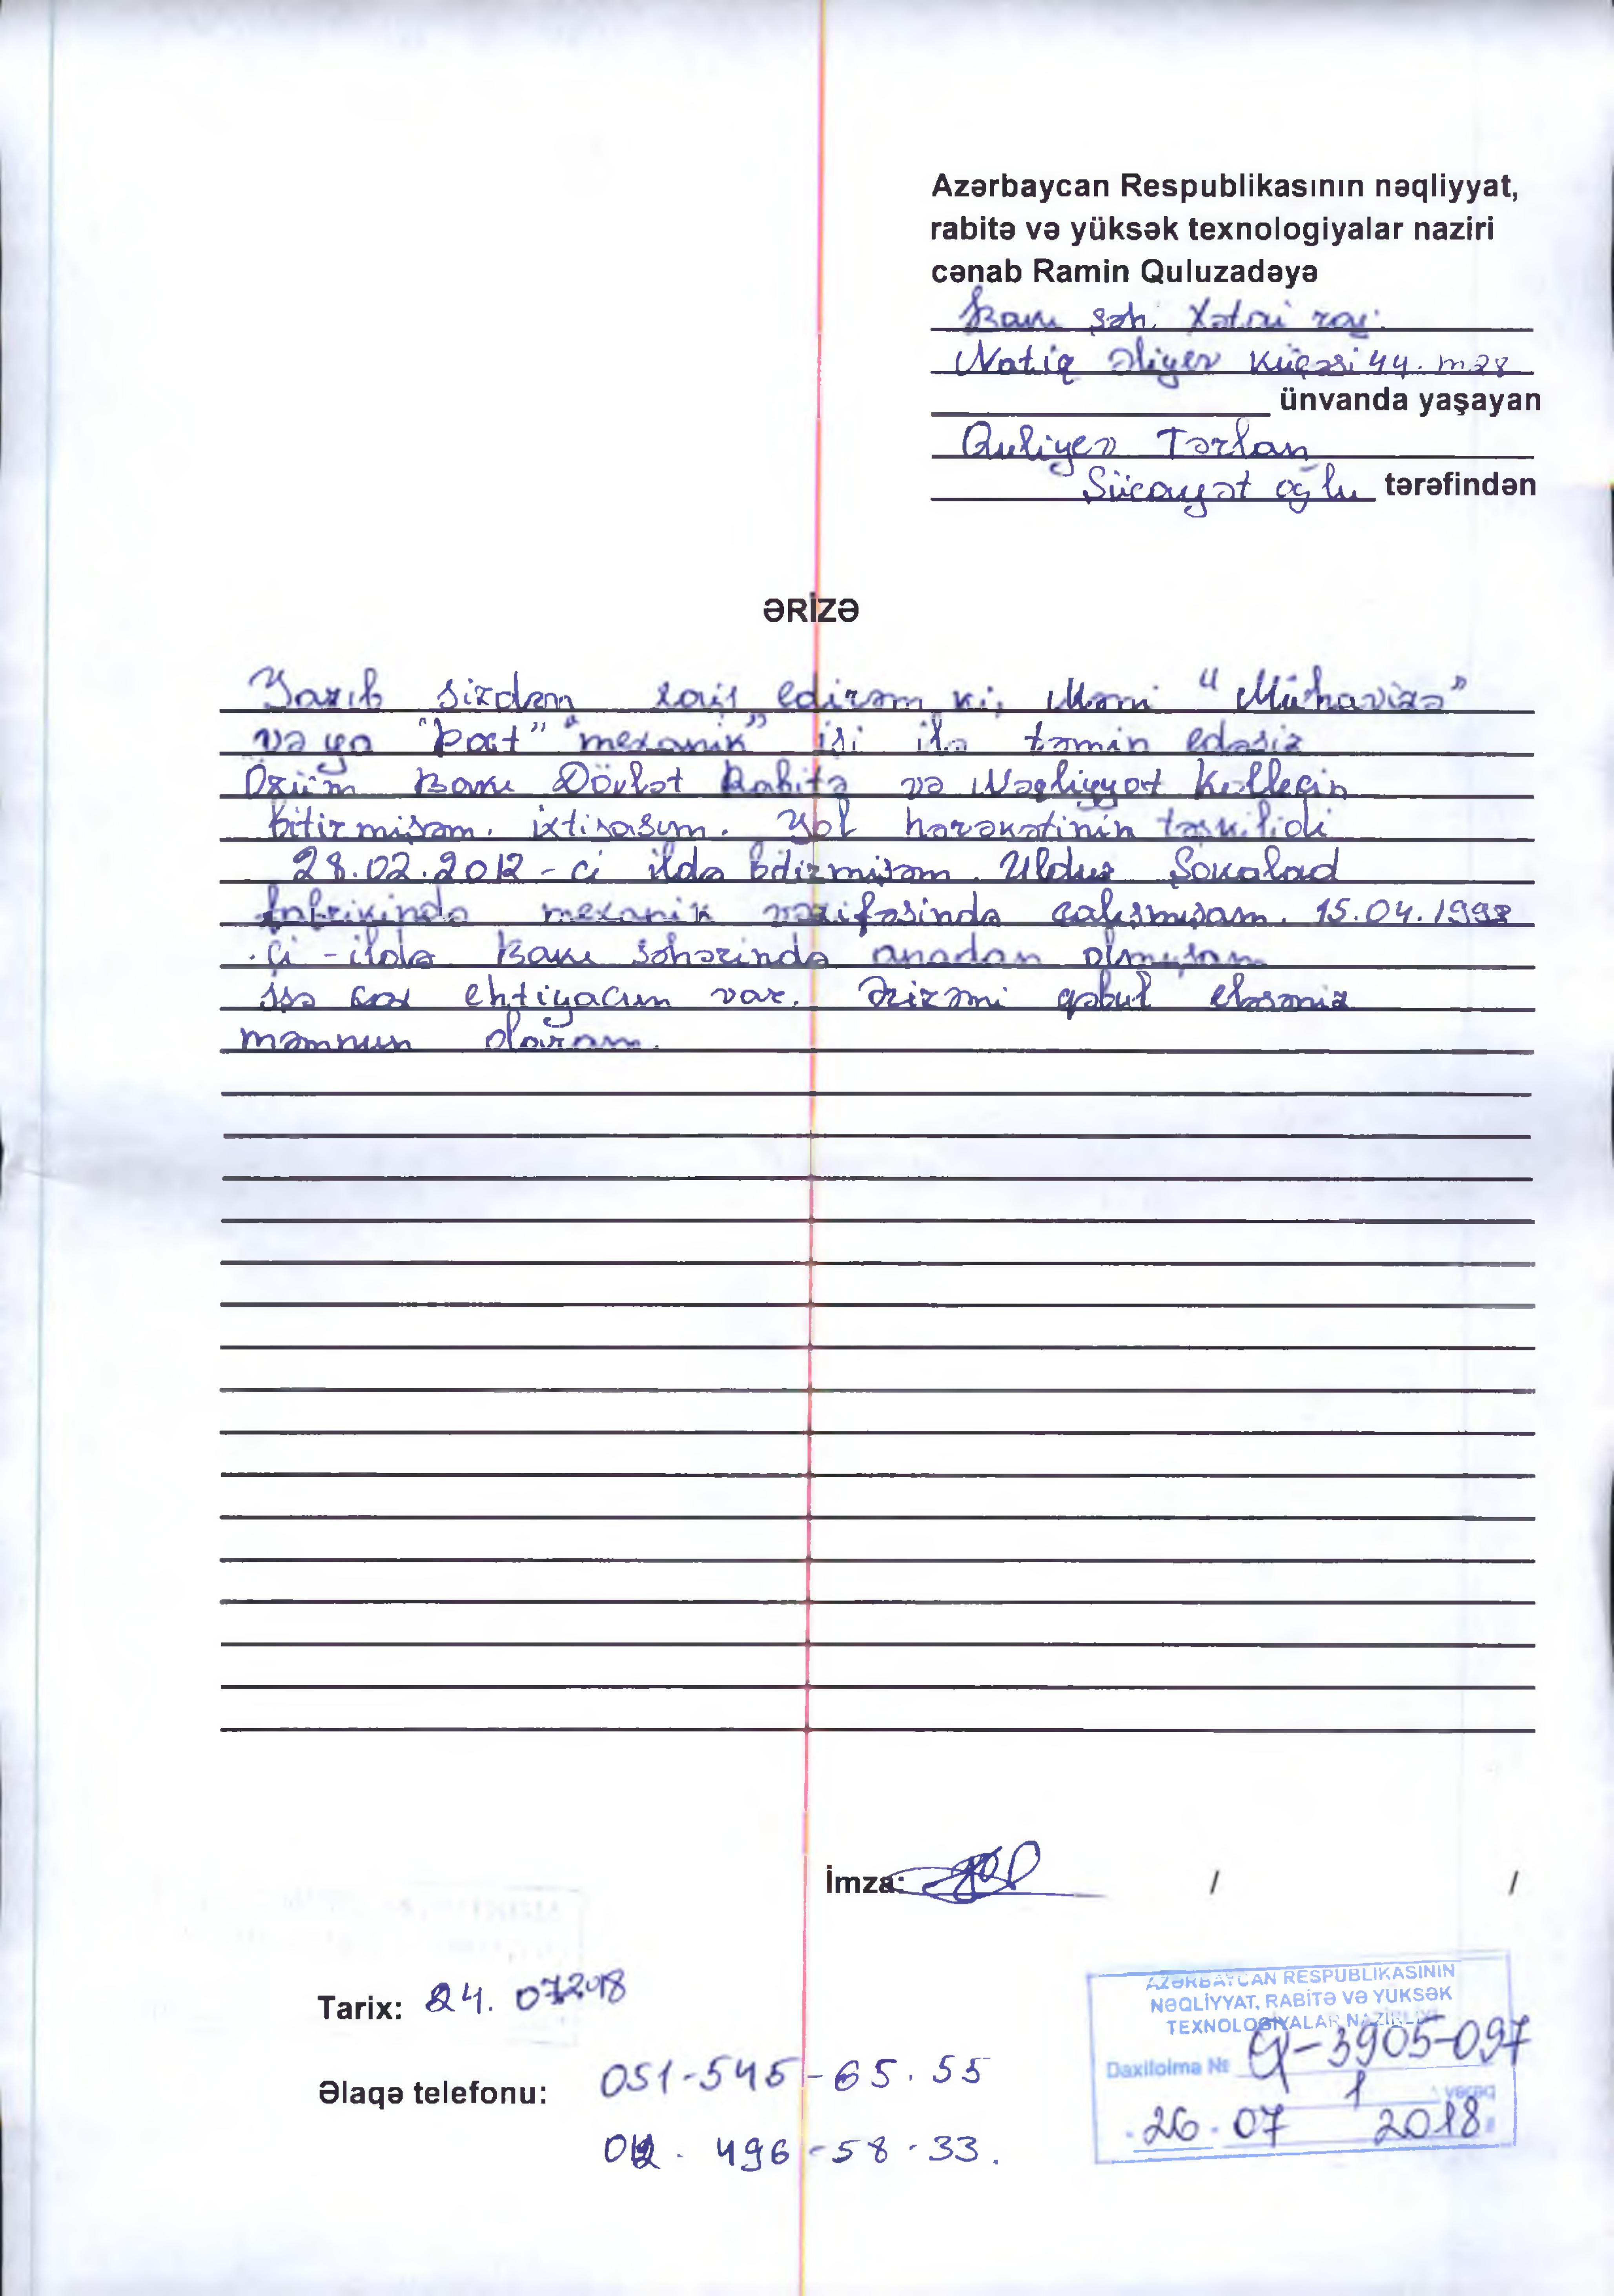 Azərbaycan Respublikasının nəqliyyat,
rabitə və yüksək texnologiyalar naziri
cənab Ramin Quluzadəyə
Bakı şəh. Xətai ray.
Natiq Əliyev Küçəsi 44. m28
ünvanda yaşayan
Quliyev Tərlan
Sücayət oğlu tərəfindən
ƏRİZƏ
Yazıb sizdən xaiş edirəm ki, Məni "Mühavizə"
və ya "post" "mexanik" işi ilə təmin edəsiz
Özüm Bakı Dövlət Rabitə və Nəqliyyat Kollecin
bitirmişəm. ixtisasım. Yol hərəkətinin təşkilidi
28.02.2012-ci ildə bitirmişəm. Ulduz Şokalad
fabrikində mexanik vəzifəsində çalışmışam. 15.04.1998
.ci -ildə Bakı şəhərində anadan olmuşam
işə çox ehtiyacım var. Ərizəmi qəbul etsəniz
məmnun olaram.
İmza: / /
Tarix: 24. 072018
Əlaqə telefonu: 051-545-65.55
012. 496-58-33.
AZƏRBAYCAN RESPUBLİKASININ
NƏQLİYYAT, RABİTƏ VƏ YÜKSƏK
TEXNOLOGİYALAR NAZİRLİYİ
Daxilolma № Q-3905-097
1 vərəq
26.07 2018